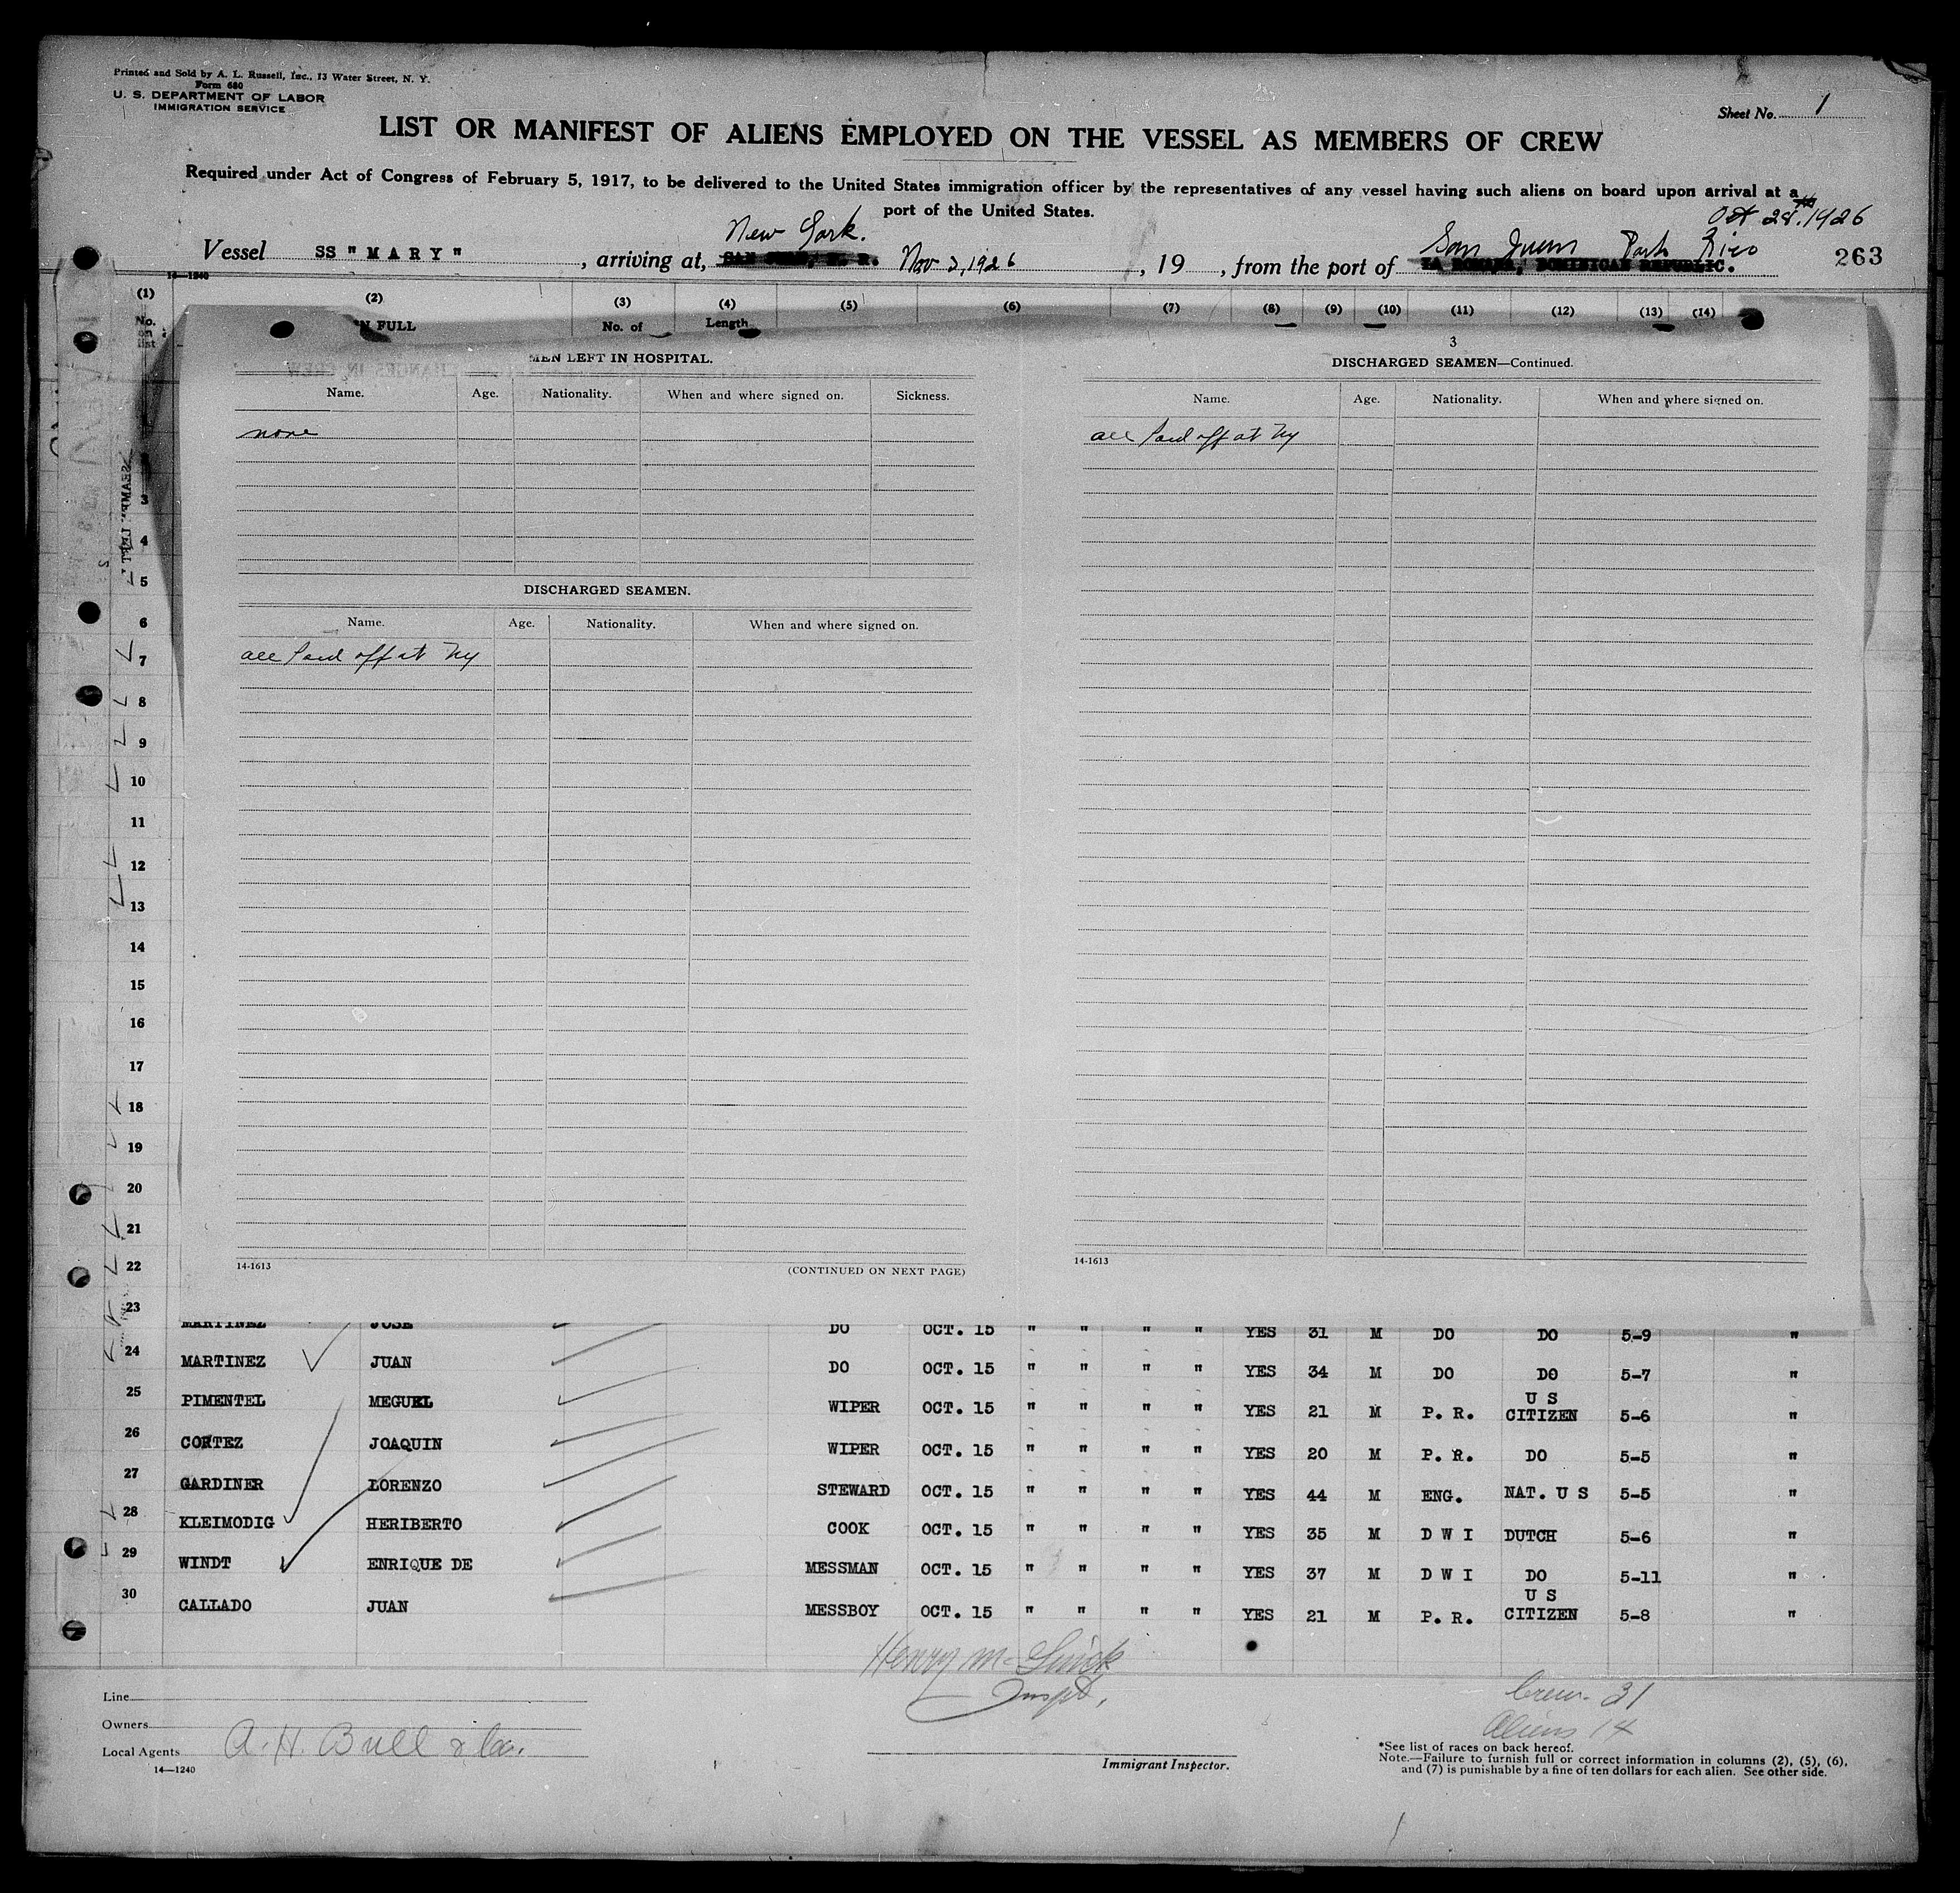 Printed and Sold by A. L. Russell, Inc., 13 Water Street, N. Y.
Form 680
U. S. DEPARTMENT OF LABOR
IMMIGRATION SERVICE
Sheet No. 1
LIST OR MANIFEST OF ALIENS EMPLOYED ON THE VESSEL AS MEMBERS OF CREW
Required under Act of Congress of February 5, 1917, to be delivered to the United States immigration officer by the representatives of any vessel having such aliens on board upon arrival at a
port of the United States.
Oct 28th 1926
New York. San Juan Porto Rico
Vessel SS "MARY", arriving at, SAN JUAN, P. R. Nov 2, 1926, 19, from the port of LA ROMANA, DOMINICAN REPUBLIC. 263
14-1240
(1) (2) (3) (4) (5) (6) (7) (8) (9) (10) (11) (12) (13) (14)
No. on list IN FULL No. of Length
MEN LEFT IN HOSPITAL.
Name. Age. Nationality. When and where signed on. Sickness.
none
DISCHARGED SEAMEN.
Name. Age. Nationality. When and where signed on.
all Paid off at NY
14-1613
(CONTINUED ON NEXT PAGE)
3
DISCHARGED SEAMEN—Continued.
Name. Age. Nationality. When and where signed on.
all Paid off at NY
14-1613
3
4
5
6
7
8
9
10
11
12
13
14
15
16
17
18
19
20
21
22
23 MARTINEZ JOSE DO OCT. 15 " " " " YES 31 M DO DO 5-9 "
24 MARTINEZ JUAN DO OCT. 15 " " " " YES 34 M DO DO 5-7 "
25 PIMENTEL MEGUEL WIPER OCT. 15 " " " " YES 21 M P. R. U S CITIZEN 5-6 "
26 CORTEZ JOAQUIN WIPER OCT. 15 " " " " YES 20 M P. R. DO 5-5 "
27 GARDINER LORENZO STEWARD OCT. 15 " " " " YES 44 M ENG. NAT. U S 5-5 "
28 KLEIMODIG HERIBERTO COOK OCT. 15 " " " " YES 35 M D W I DUTCH 5-6 "
29 WINDT ENRIQUE DE MESSMAN OCT. 15 " " " " YES 37 M D W I DO 5-11 "
30 CALLADO JUAN MESSBOY OCT. 15 " " " " YES 21 M P. R. U S CITIZEN 5-8 "
Henry
Inspt.
Crew. 31
Aliens 14
Line
Owners
Local Agents A. H. Bull & Co.
14—1240
Immigrant Inspector.
*See list of races on back hereof.
Note.—Failure to furnish full or correct information in columns (2), (5), (6),
and (7) is punishable by a fine of ten dollars for each alien. See other side.